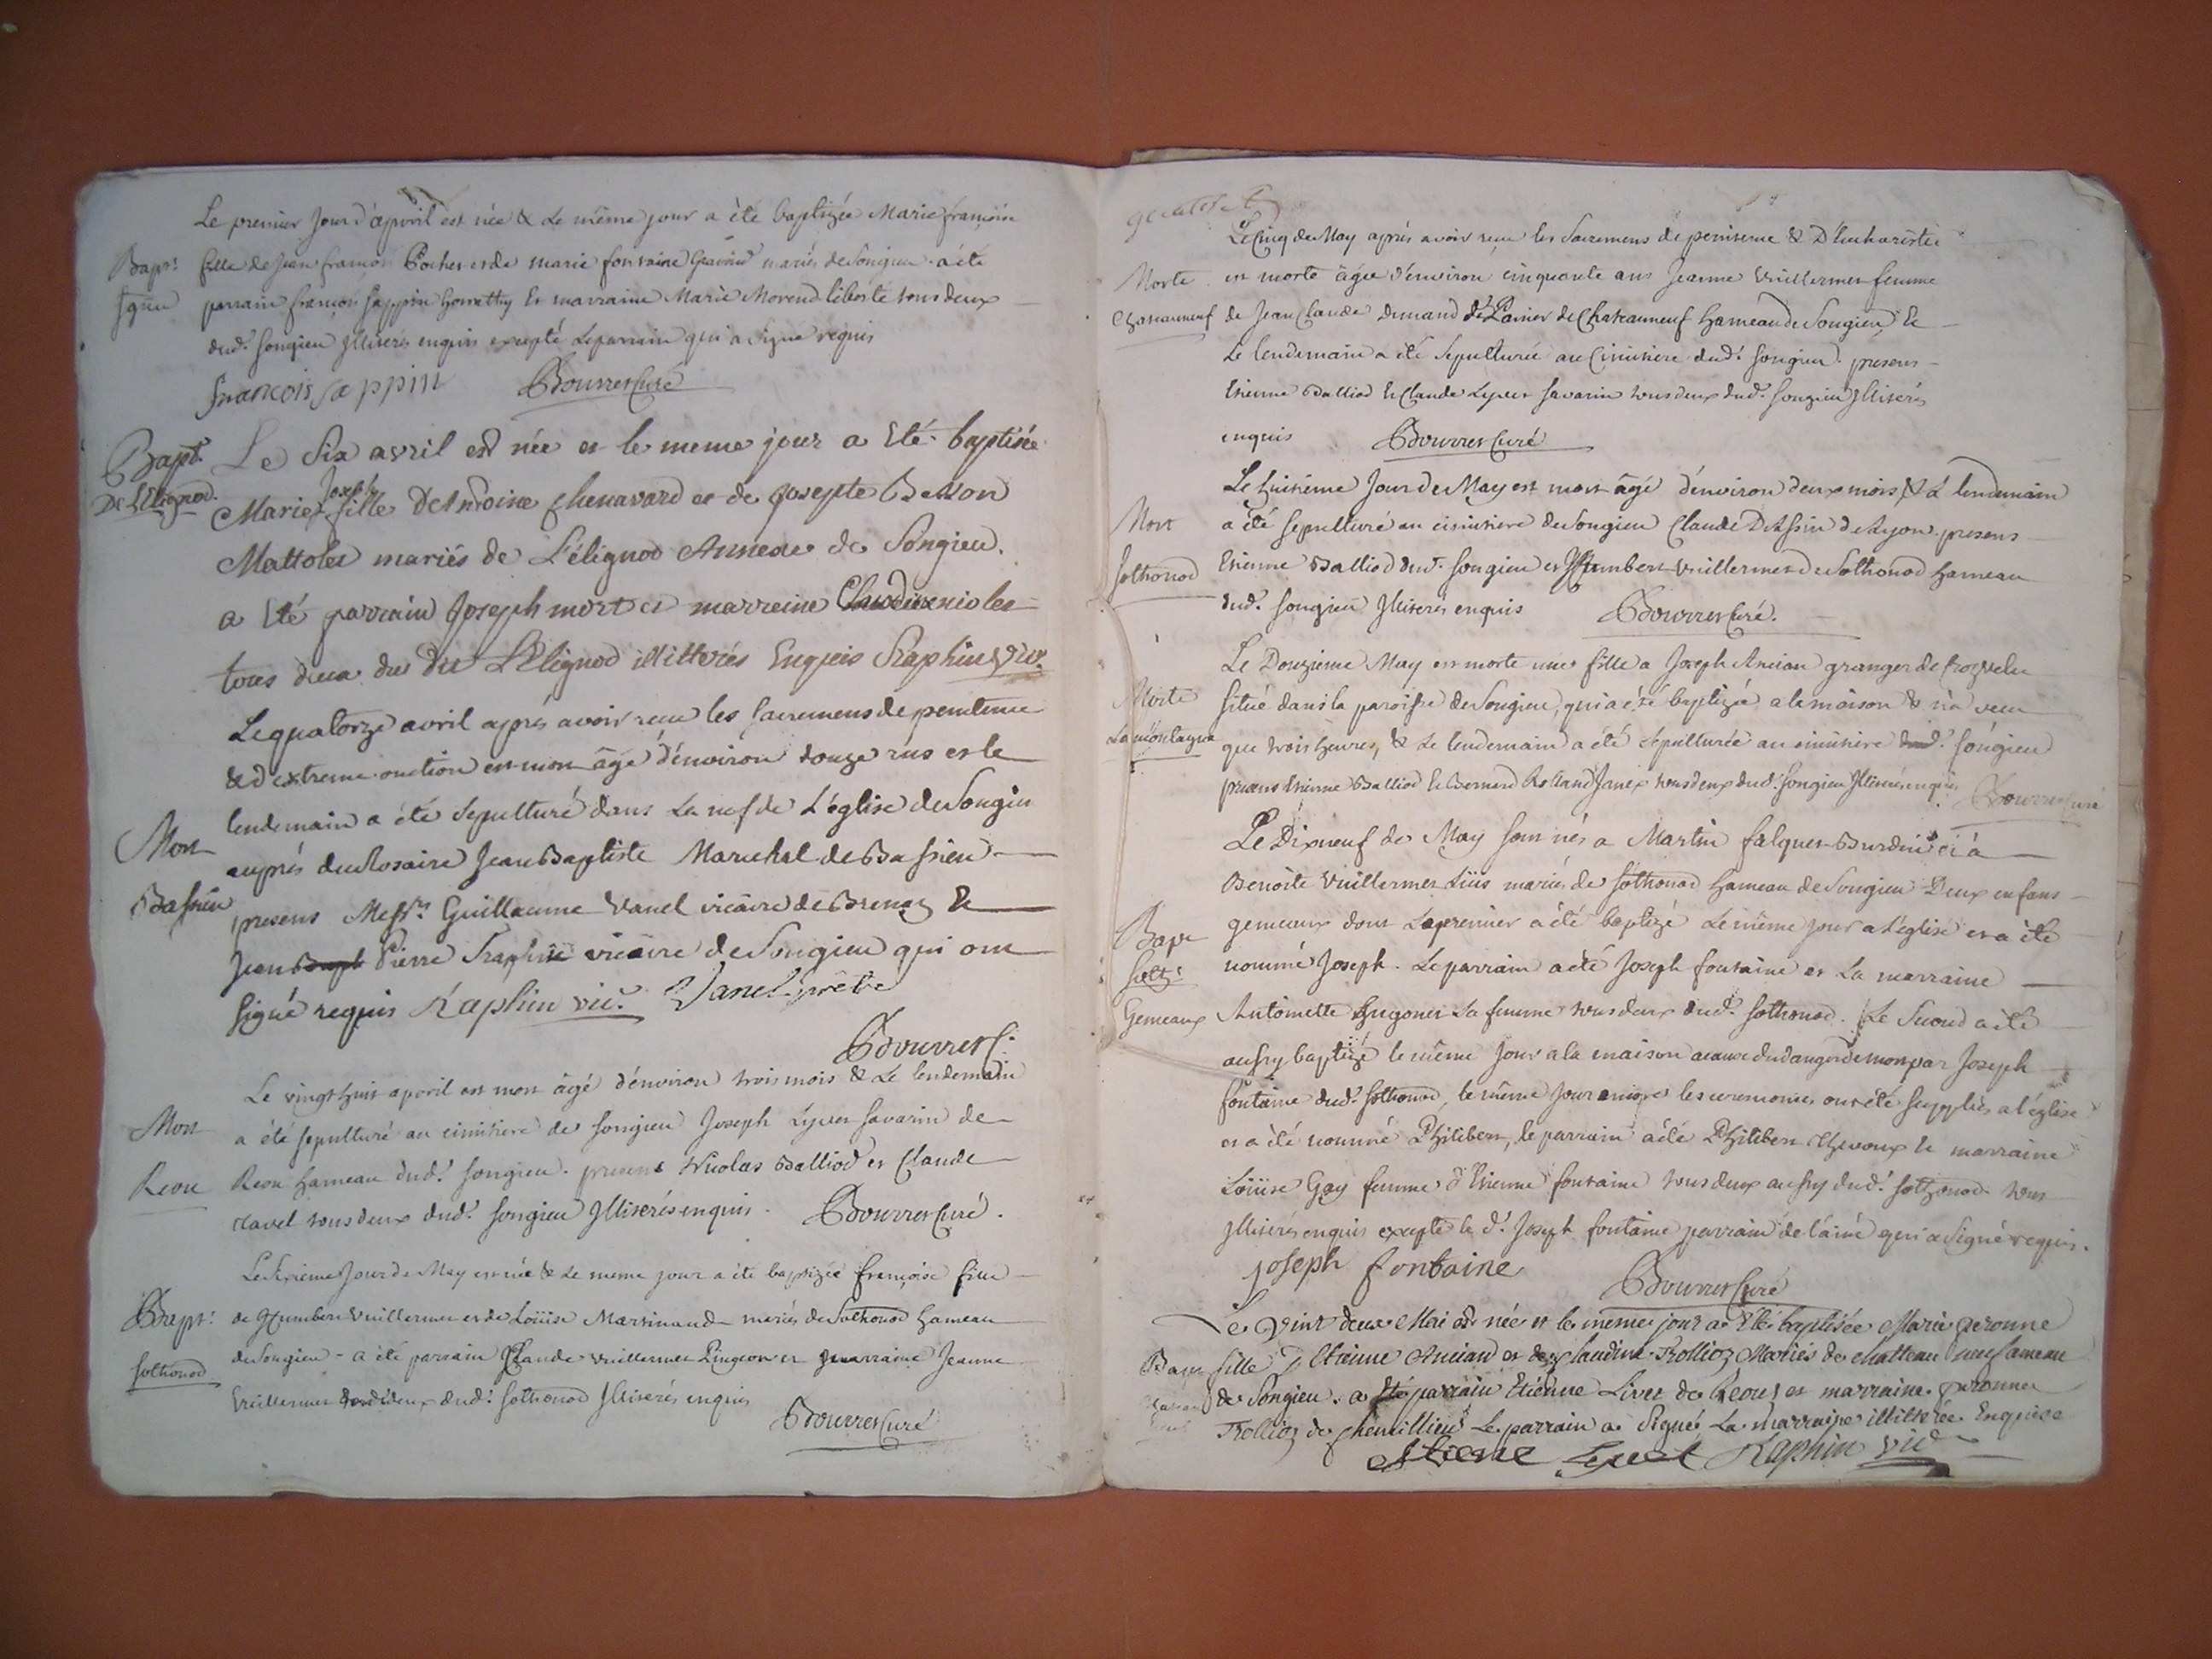 Le premier Jour d'apvril est née & Le même jour a été baptizée Marie françoise
Bapt. fille de Jean françois Pochet et de marie fontaine mariés de Songieu. a été
parrain françois Sappin et marraine Marie Morend tous deux
dud. Songieu Illiterés enquis excepté Le parrain qui a Signé requis
françois Sappin Bourret Curé
Bapt. Le Six avril est née et le meme jour a Eté baptisée
De L'Elignod. Marie Joseph fille D'Antoine Chenavard et de Josepte Besson
Mattolet mariés de L'élignod Annexe de Songieu.
a Eté parrain Joseph mort et marreine Claudine niolet
tous deux du dit L'Elignod illitterés Enquis Raphin Vic.
Le quatorze avril aprés avoir reçu les Sacremens de penitence
& d'extreme-onction est mort âgé d'environ douze ans et le
lendemain a été sepulturé dans La nef de L'église de Songieu
Mort auprés du Rosaire Jean Baptiste Marechal de Bassieu
Bassieu presens Messrs Guillaume Vanel vicaire de Brenaz &
Jean Pierre Raphin vicaire de Songieu qui ont
Signé requis Raphin vic. Vanel prêtre
Bourret C.
Le vingt huit apvril est mort âgé d'environ trois mois & Le lendemain
Mort a été sepulturé au cimitiere de Songieu Joseph Lyvet Savarin de
Reou Reou hameau dud. Songieu. presens Nicolas Balliod et Claude
Clavel tous deux dud. Songieu Illiterés enquis. Bourret Curé.
Le Jour de May est née & Le meme jour a été baptizée françoise fille
Bapt. de Humbert Vuillermet et de Loüise Martinand mariés de Sothonod hameau
Sothonod de Songieu - a été parrain Claude Vuillermet Pingeon et marraine Jeanne
Vuillermet tous deux dud. Sothonod Illiterés enquis
Bourret Curé
Le Cinq de May aprés avoir reçu les Sacremens de penitence & D'Eucharistie
Morte est morte âgée d'environ cinquante ans Jeanne Vuillermet femme
Chateauneuf de Jean Claude Durand de Chateauneuf hameau de Songieu &
Le lendemain a été Sepulturée au Cimitiere dud. Songieu. presens
Etienne Balliod & Claude Lyvet Savarin tous deux dud. Songieu Illiterés
enquis Bourret Curé
Le huitième Jour de May est mort âgé d'environ deux mois & Le lendemain
Mort a été Sepulturé au cimitiere de Songieu Claude D'Assin de Lyon. presens
Sothonod Etienne Balliod dud. Songieu et Humbert Vuillermet de Sothonod hameau
dud. Songieu Illiterés enquis Bourret Curé.
Le Douzieme May est morte une fille a Joseph Ancian granger de
Morte situé dans la paroisse de Songieu, qui a été baptizée a la maison & n'a vecu
La montagne que trois heures, & Le lendemain a été sepulturée au cimitiere dud. Songieu
presens Etienne Balliod & Bernard Rolland Janex tous deux dud. Songieu Illiterés enquis Bourret Curé
Le Dix neuf de May sont nés a Martin falquet Burdin et à
Benoite Vuillermet mariés de Sothonod hameau de Songieu Deux enfans
Bapt gemeaux dont Le premier a été baptizé Le même jour a l'église et a été
Soth. nommé Joseph. Le parrain a été Joseph fontaine et La marraine
Gemeaux Antoinette Hugonet Sa femme tous deux dud. Sothonod. Le Second a été
aussy baptizé le même Jour a la maison a cause du danger de mort par Joseph
fontaine dud. Sothonod, le même Jour les ceremonies ont été supplées a l'église
et a été nommé Philibert, le parrain a été Philibert Chevoux & marraine
Loüise Gay femme d'Etienne fontaine tous deux aussy dud. Sothonod. tous
Illiterés enquis excepté le d. Joseph fontaine parrain de l'ainé qui a Signé requis.
Joseph fontaine Bourret Curé
Le Vint deux Mai est née et le meme jour a Eté baptisée Marie peronne
Bapt fille D'Etienne Ancian et de Claudine Rollioz Mariés de Chatteau neuf ameau
de Songieu. a Eté parrain Etienne Livet de Reou et marraine peronne
Rollioz de Chemillieu Le parrain a Signé La marraine illitterée Enquise
Etiene Lyvet Raphin vic